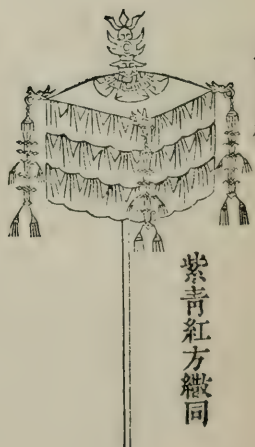 紫青紅方繖同